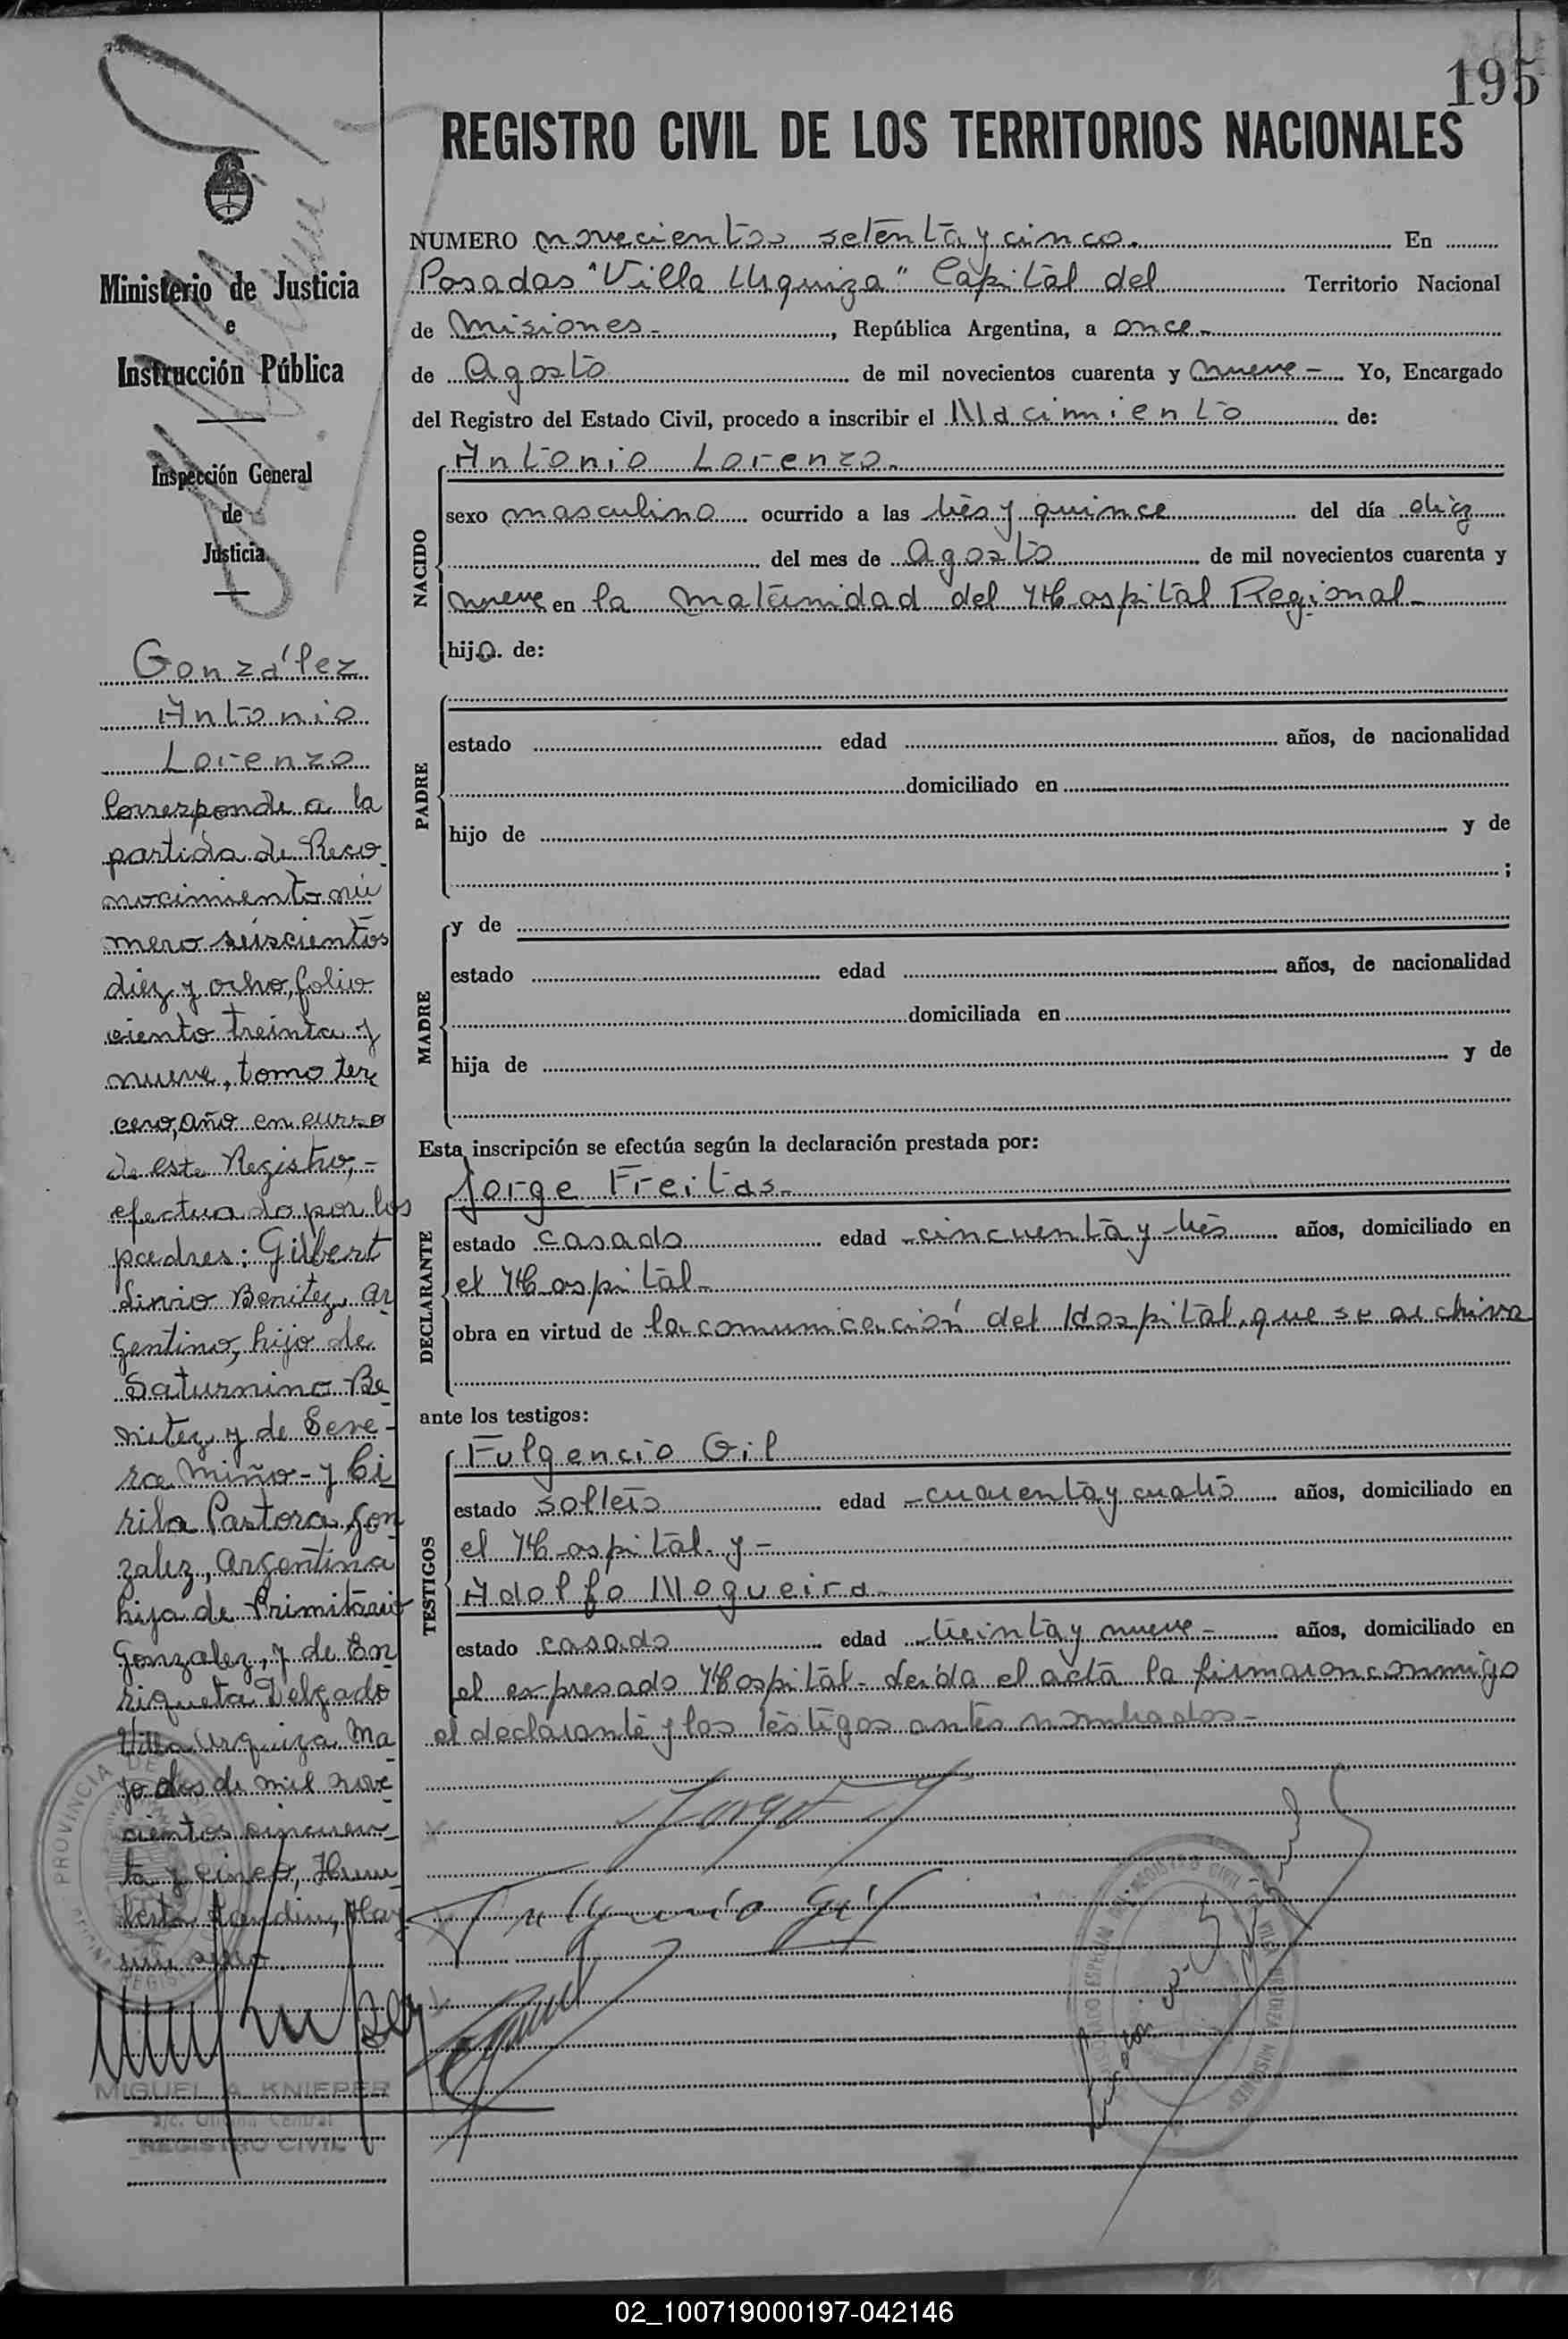 195
REGISTRO CIVIL DE LOS TERRITORIOS NACIONALES
Ministerio de Justicia
e
Instrucción Pública
Inspección General
de
Justicia
González
Antonio
Lorenzo
Corresponde a la
partida de Reco
nocimiento nú
mero seiscientos
diez y ocho, folio
ciento treinta y
nueve, tomo ter
cero, año en curso
de este Registro,-
efectuado por los
padres: Gilbert
Linvio Benitez, ar
gentino, hijo de
Saturnino Be
nitez y de Seve-
ra Miño- y Ci
rila Pastora Gon
zalez, argentina
hija de Primitavio
Gonzalez, y de En
riqueta Delgado
Villa Urquiza Ma
yo dos de mil nove
cientos cincuen
ta y cinco,
MIGUEL A. KNIEPER
a/c. Oficina Central
REGISTRO CIVIL
NUMERO novecientos setenta y cinco. En
Posadas "Villa Urquiza" Capital del Territorio Nacional
de Misiones-, República Argentina, a once-
de Agosto de mil novecientos cuarenta y nueve- Yo, Encargado
del Registro del Estado Civil, procedo a inscribir el Nacimiento de:
NACIDO
Antonio Lorenzo.
sexo masculino ocurrido a las tres y quince del día diez
del mes de Agosto de mil novecientos cuarenta y
nueve en la maternidad del Hospital Regional-
hijo de:
PADRE
estado edad años, de nacionalidad
domiciliado en
hijo de y de
;
MADRE
y de
estado edad años, de nacionalidad
domiciliada en
hija de y de
Esta inscripción se efectúa según la declaración prestada por:
DECLARANTE
Jorge Freitas-
estado casado edad cincuenta y tres años, domiciliado en
el Hospital-
obra en virtud de la comunicación del Hospital, que se archiva
ante los testigos:
TESTIGOS
Fulgencio Gil
estado soltero edad cuarenta y cuatro años, domiciliado en
el Hospital y-
Adolfo Nogueira-
estado casado edad treinta y nueve- años, domiciliado en
el expresado Hospital- Leída el acta la firmaron conmigo
el declarante y los testigos antes nombrados-
Fulgencio Gil
02_100719000197-042146